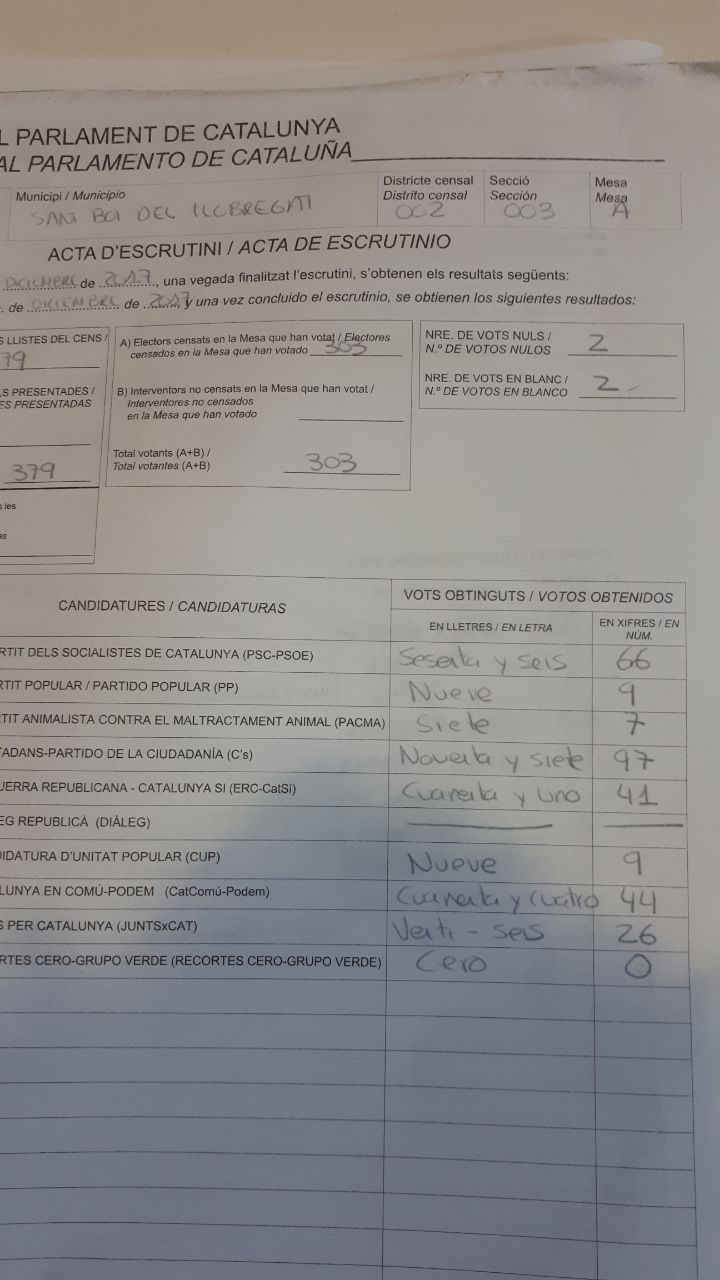 L PARLAMENT DE CATALUNYA
AL PARLAMENTO DE CATALUÑA
Municipi / Municipio
SANT BOI DEL LLOBREGAT
Districte censal
Distrito censal
002
Secció
Sección
003
Mesa
Mesa
A
ACTA D'ESCRUTINI / ACTA DE ESCRUTINIO
DICIEMBRE de 2017, una vegada finalitzat l'escrutini, s'obtenen els resultats següents:
. de DICIEMBRE de 2017, y una vez concluido el escrutinio, se obtienen los siguientes resultados:
S LLISTES DEL CENS /
79
S PRESENTADES /
ES PRESENTADAS
379
s les
as
A) Electors censats en la Mesa que han votat / Electores
censados en la Mesa que han votado 303
B) Interventors no censats en la Mesa que han votat /
Interventores no censados
en la Mesa que han votado
Total votants (A+B) /
Total votantes (A+B) 303
NRE. DE VOTS NULS /
N.º DE VOTOS NULOS 2
NRE. DE VOTS EN BLANC /
N.º DE VOTOS EN BLANCO 2
CANDIDATURES / CANDIDATURAS
VOTS OBTINGUTS / VOTOS OBTENIDOS
EN LLETRES / EN LETRA
EN XIFRES / EN
NÚM.
RTIT DELS SOCIALISTES DE CATALUNYA (PSC-PSOE) Sesenta y seis 66
RTIT POPULAR / PARTIDO POPULAR (PP) Nueve 9
TIT ANIMALISTA CONTRA EL MALTRACTAMENT ANIMAL (PACMA) Siete 7
TADANS-PARTIDO DE LA CIUDADANÍA (C's) Noventa y siete 97
UERRA REPUBLICANA - CATALUNYA SI (ERC-CatSí) Cuarenta y uno 41
EG REPUBLICÀ (DIÀLEG)
DIDATURA D'UNITAT POPULAR (CUP) Nueve 9
LUNYA EN COMÚ-PODEM (CatComú-Podem) Cuarenta y cuatro 44
S PER CATALUNYA (JUNTSxCAT) Venti - seis 26
RTES CERO-GRUPO VERDE (RECORTES CERO-GRUPO VERDE) Cero 0